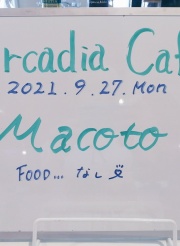 rcadia Caf
2021.9.27.Mon
Macoto
FOOD... なし